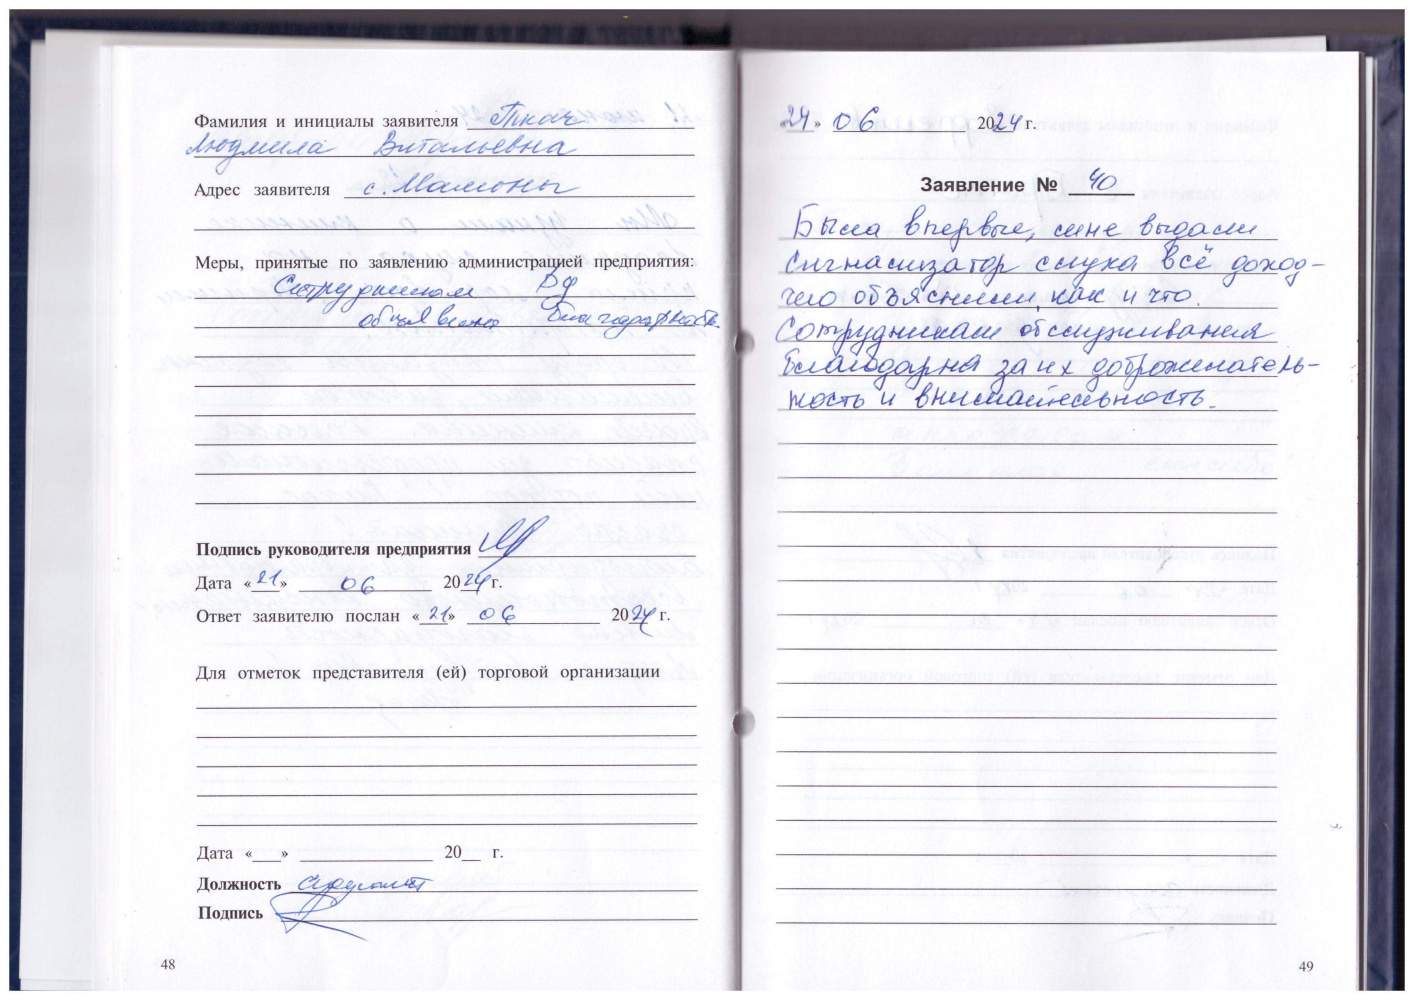 Фамилия и инициалы заявителя Ткач
Людмила Витальевна
Адрес заявителя с. Мамоны
Меры, принятые по заявлению администрацией предприятия:
Сотрудникам
объявлена благодарность.
Подпись руководителя предприятия
Дата «21» 06 2024 г.
Ответ заявителю послан «21» 06 2024 г.
Для отметок представителя (ей) торговой организации
Дата «___» _______________ 20__ г.
Должность
Подпись
48
24 » 06 2024 г.
Заявление № 40
Была впервые, мне выдали
сигнализатор слуха всё доход-
чиво объяснили, как и что.
Сотрудникам обслуживания
благодарна за их доброжелатель-
ность и внимательность.
49